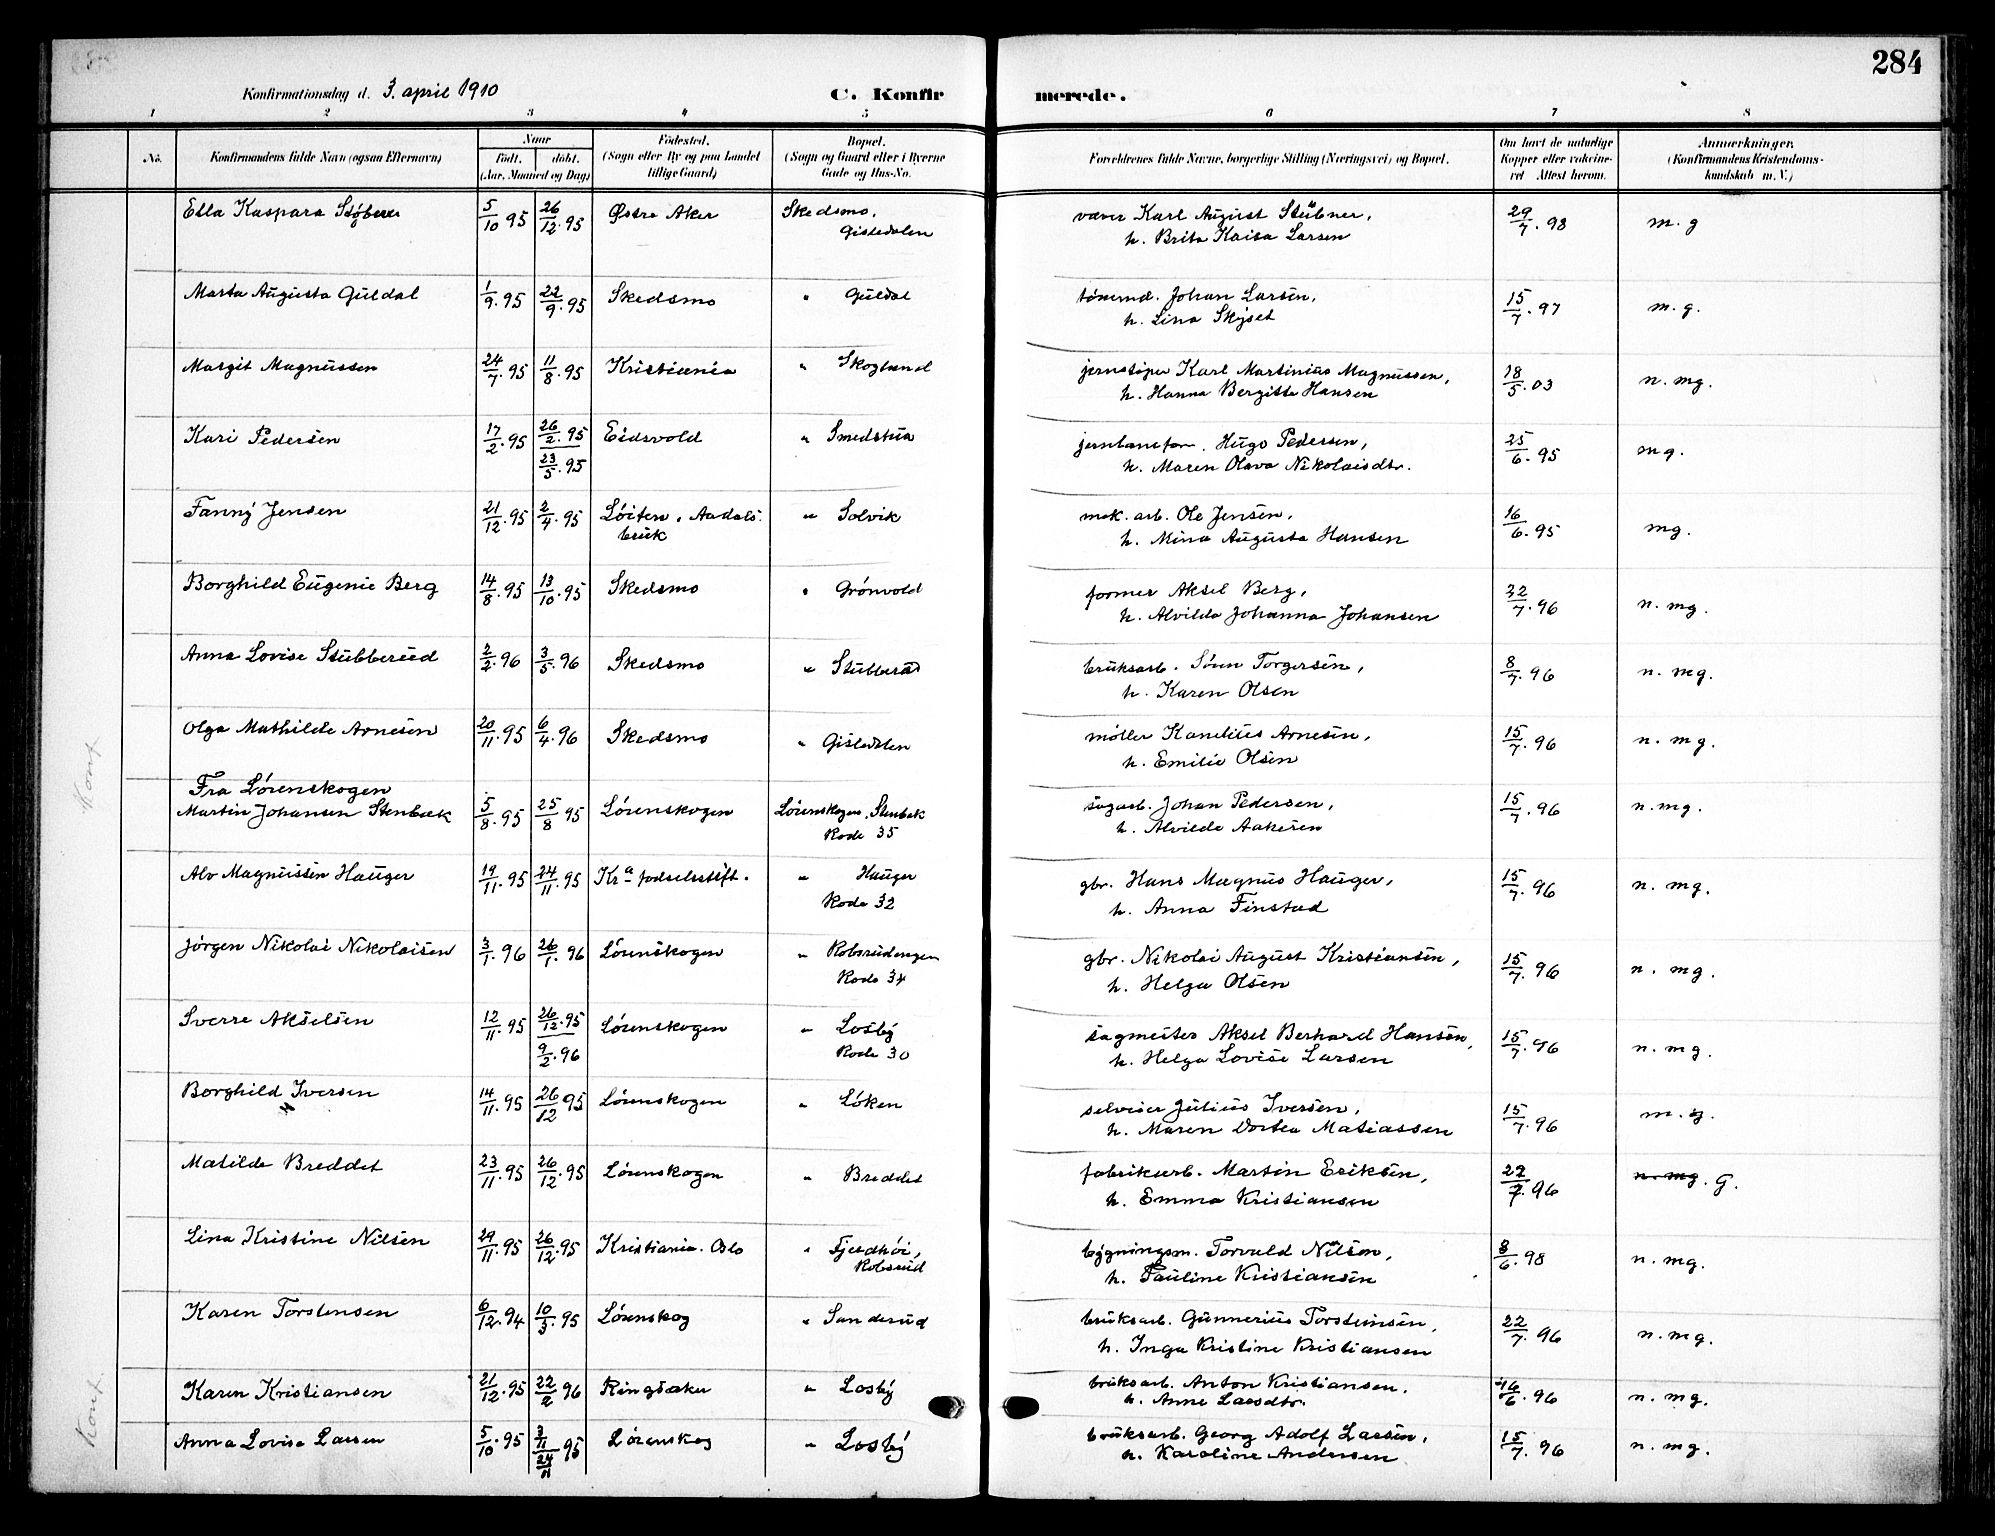 284
Konfirmationsdag d. 3. april 1910
C. Konfir merede.
1 2 3 4 5 6 7 8
No.
Konfirmandens fulde Navn (ogsaa Efternavn)
Naar
født. døbt.
(Aar, Maaned og Dag)
Fødested.
(Sogn eller By og paa Landet
tillige Gaard)
Bopæl.
(Sogn og Gaard eller i Byerne
Gade og Hus-No.
Forældrenes fulde Navne, borgerlige Stilling (Næringsvei) og Bopæl.
Om havt de naturlige
Kopper eller vakcine-
ret Attest herom.
Anmærkninger.
(Konfirmandens Kristendoms-
kundskab m. V.)
Ella Kaspara 5/10 95 26/12 95 Østre Aker Skedsmo, væver Karl August Stübner, 29/7. 98 m. g
Gistedalen h. Brita Kaisa Larsen
Marta Augusta Guldal 1/9. 95 22/9. 95 Skedsmo " Guldal Johan Larsen, 15/7. 97 m. g.
h. Lina Skyset
Margit Magnussen 24/7. 95 11/8. 95 Kristiania " Skoglund jernstøper Karl Martinius Magnussen, 18/5. 03 n. mg.
h. Hanna Bergitte Hansen
Kari Pedersen 17/2. 95 26/2. 95 Eidsvold " Smedstua Hugo Pedersen, 25/6. 95 mg.
23/5. 95 h. Maren Olava Nikolaisdtr.
Fanny Jensen 21/12. 95 2/4. 95 Løiten, Aadals " Solvik mek. arb. Ole Jensen, 16/6. 95 mg.
bruk h. Mina Augusta Hansen
Borghild Eugenie Berg 14/8. 95 13/10. 95 Skedsmo " Grönvold former Aksel Berg, 22/7. 96 n. mg.
h. Alvilda Johanna Johansen
Anna Lovise Stubberud 2/2. 96 3/5. 96 Skedsmo " Stubberud bruksarb. Sören Torgersen, 8/7. 96 n. mg.
h. Karen Olsen
Olga Mathilde Arnesen 20/11. 95 6/4. 96 Skedsmo " Gistedalen möller Kornelius Arnesen, 15/7. 96 n. mg.
h. Emilie Olsen
Fra Lörenskogen
Martin Johansen Stenbæk 5/8. 95 25/8 95 Lörenskogen Lörenskogen, Stenbæk sagarb. Johan Pedersen, 15/7. 96 n. mg.
Rode 35 h. Alvilde Aakesen
Alv Magnussen Hauger 19/11. 95 24/11. 95 Kr.a fødselsstift. " Hauger gbr. Hans Magnus Hauger, 15/7. 96 n. mg.
Rode 32 h. Anna Finstad
Jörgen Nikolai Nikolaisen 3/1. 96 26/1. 96 Lörenskogen " Robsrudengen gbr. Nikolai August Kristiansen, 15/7. 96 n. mg.
Rode 34 h. Helga Olsen
Sverre Akselsen 12/11. 95 26/12. 95 Lörenskogen " Losby sagmester Aksel Berhard Hansen, 15/7. 96 n. mg.
9/2. 96 Rode 30 h. Helga Lovise Larsen
Borghild Iversen 14/11. 95 26/12 95 Lörenskogen " Löken selveier Julius Iversen, 15/7. 96 m. g.
h. Maren Dortea Matiassen
Matilde Breddet 23/11. 95 26/12. 95 Lörenskogen " Breddet fabrikarb. Martin Eriksen, 22/7. 96 n. mg. G.
h. Emma Kristiansen
Lina Kristine Nilsen 29/11. 95 26/12. 95 Kristiania. Oslo " Fjeldhöi, bygningsm. Torvald Nilsen, 8/6. 98 n. mg.
Robsrud h. Pauline Kristiansen
Karen Torstensen 6/12. 94 10/3. 95 Lörenskog " Sanderud bruksarb. Gunnerius Torstensen, 22/7. 96 n. mg.
h. Inga Kristine Kristiansen
Karen Kristiansen 21/12. 95 22/2 96 Ringsaker " Losby bruksarb. Anton Kristiansen, 16/6. 96 n. mg.
h. Anne Larsdtr.
Anna Lovise Larsen 5/10. 95 3/11 95 Lörenskog " Losby bruksarb. Georg Adolf Larsen, 15/7. 96 n. mg.
24/11 h. Karoline Andersen